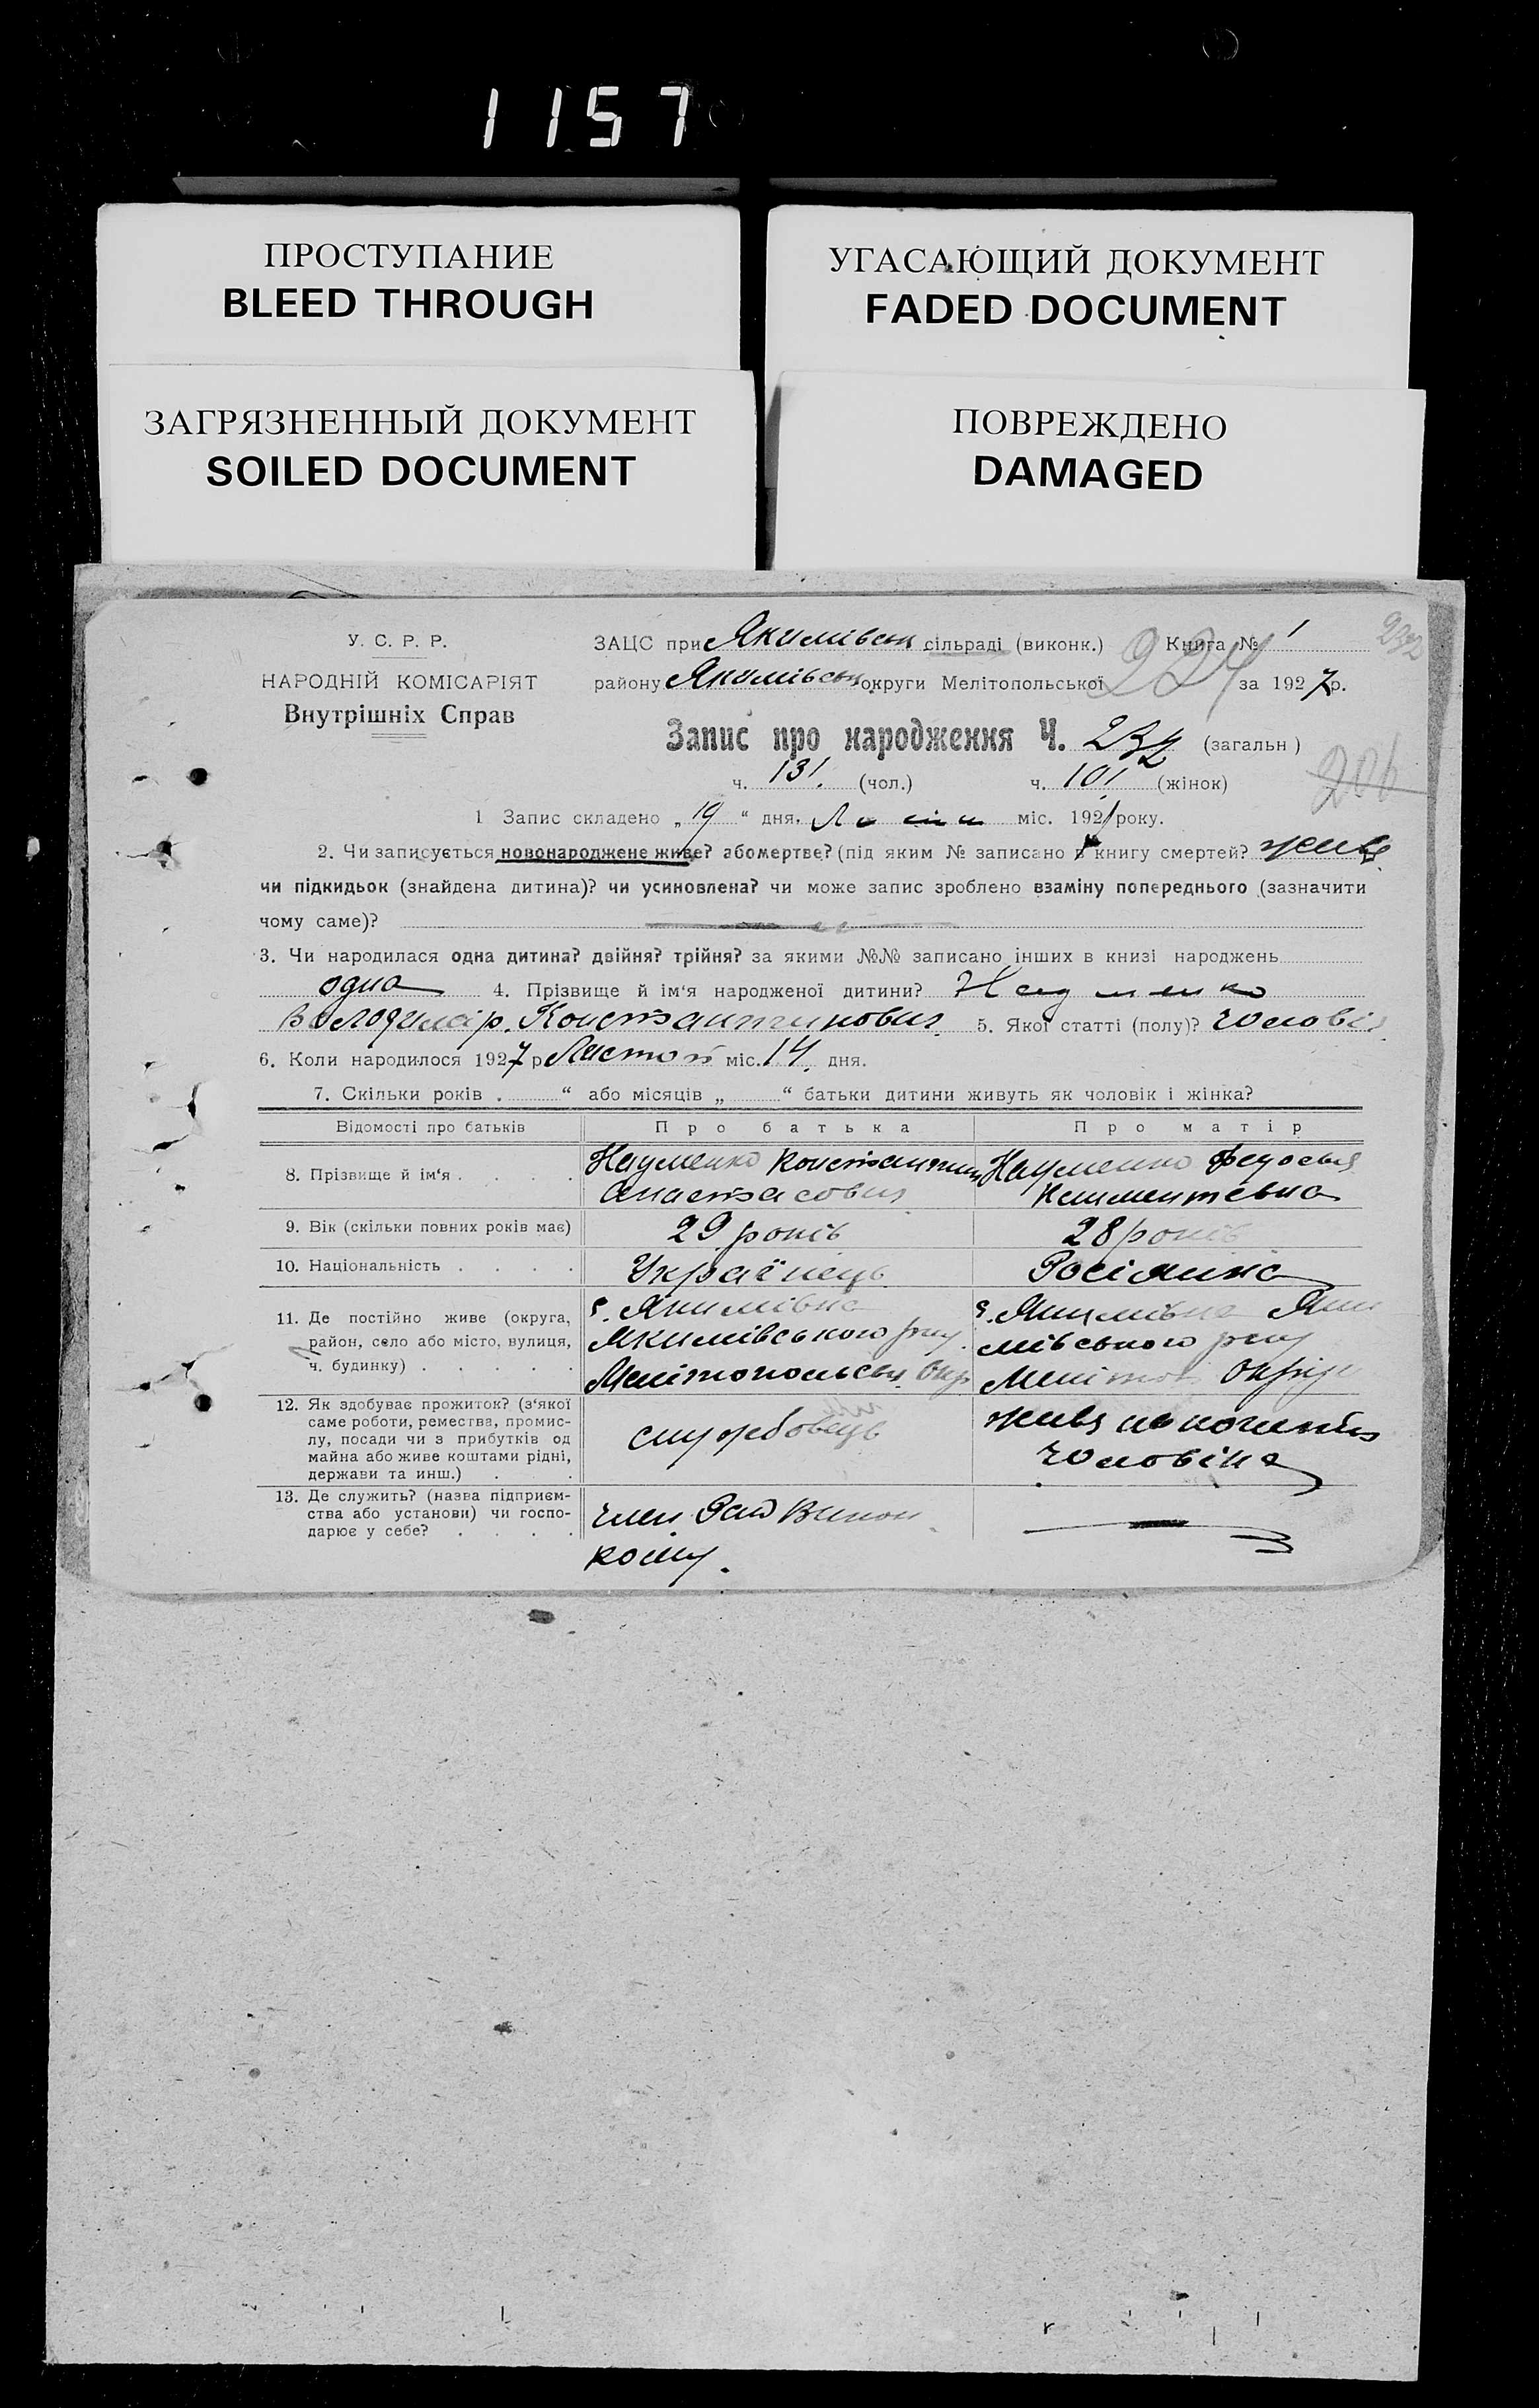 1157
ПРОСТУПАНИЕ
BLEED THROUGH
УГАСАЮЩИЙ ДОКУМЕНТ
FADED DOCUMENT
ЗАГРЯЗНЕННЫЙ ДОКУМЕНТ
SOILED DOCUMENT
ПОВРЕЖДЕНО
DAMAGED
У. С. Р. Р.
НАРОДНІЙ КОМІСАРІЯТ
Внутрішніх Справ
ЗАЦС при Якимівськ сільраді (виконк.) Книга № 1
232
району Якимівськ округи Мелітопольської 224 за 1927 р.
Запис про народження Ч. 232 (загальн)
ч. 131. (чол.) ч. 101. (жінок)
206
1 Запис складено „19“ дня, міс. 192 року.
2. Чи записується новонароджене живе? або мертве? (під яким № записано в книгу смертей? живе
чи підкидьок (знайдена дитина)? чи усиновлена? чи може запис зроблено взаміну попереднього (зазначити
чому саме)?
3. Чи народилася одна дитина? двійня? трійня? за якими №№ записано інших в книзі народжень
одна 4. Прізвище й ім‘я народженої дитини? Науменко
Володимір. Константинович 5. Якої статті (полу)? чоловіч
6. Коли народилося 1927 р Листоп міс. 14. дня.
7. Скільки років „ “ або місяців „ “ батьки дитини живуть як чоловік і жінка?
Відомості про батьків Про батька Про матір
8. Прізвище й ім‘я . . . . Науменко Константин Анастасович Науменко Федосья Климентевна
9. Вік (скільки повних років має) 29 років 28 років
10. Національність . . . . Українець Росіянка
11. Де постійно живе (округа, с. Якимівка с. Якимівка Яки
район, село або місто, вулиця, Якимівського р-ну. мівського р-ну
ч. будинку) . . . . . Мелітопольськ. Окр Меліт Округи
12. Як здобуває прожиток? (з‘якої
саме роботи, ремества, промис-
лу, посади чи з прибутків од
майна або живе коштами рідні,
держави та инш.) . .
службовець
живе на кошти
чоловіка
13. Де служить? (назва підприєм-
ства або установи) чи госпо-
дарює у себе? . . . .
член Рай Викон
кому.